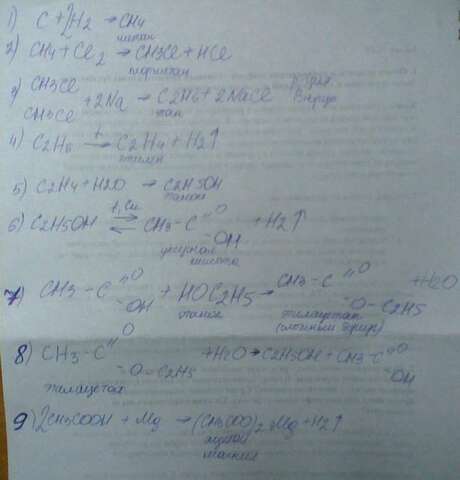 1) C + 2H2 → CH4
метан
2) CH4 + Cl2 → CH3Cl + HCl
3) CH3Cl
CH3Cl + 2Na → C2H6 + 2NaCl р-ция Вюрца
этан
4) C2H6 t→ C2H4 + H2↑
этилен
5) C2H4 + H2O → C2H5OH
этанол
6) C2H5OH t, Cu ⇄ CH3-C =O -OH + H2↑
уксусная
кислота
7) CH3-C =O -OH + HOC2H5 → CH3-C =O -O-C2H5 + H2O
этанол этилацетат
(сложный эфир)
8) CH3-C =O -O-C2H5 + H2O → C2H5OH + CH3-C =O -OH
этилацетат
9) 2CH3COOH + Mg → (CH3COO)2Mg + H2↑
ацетат
магния